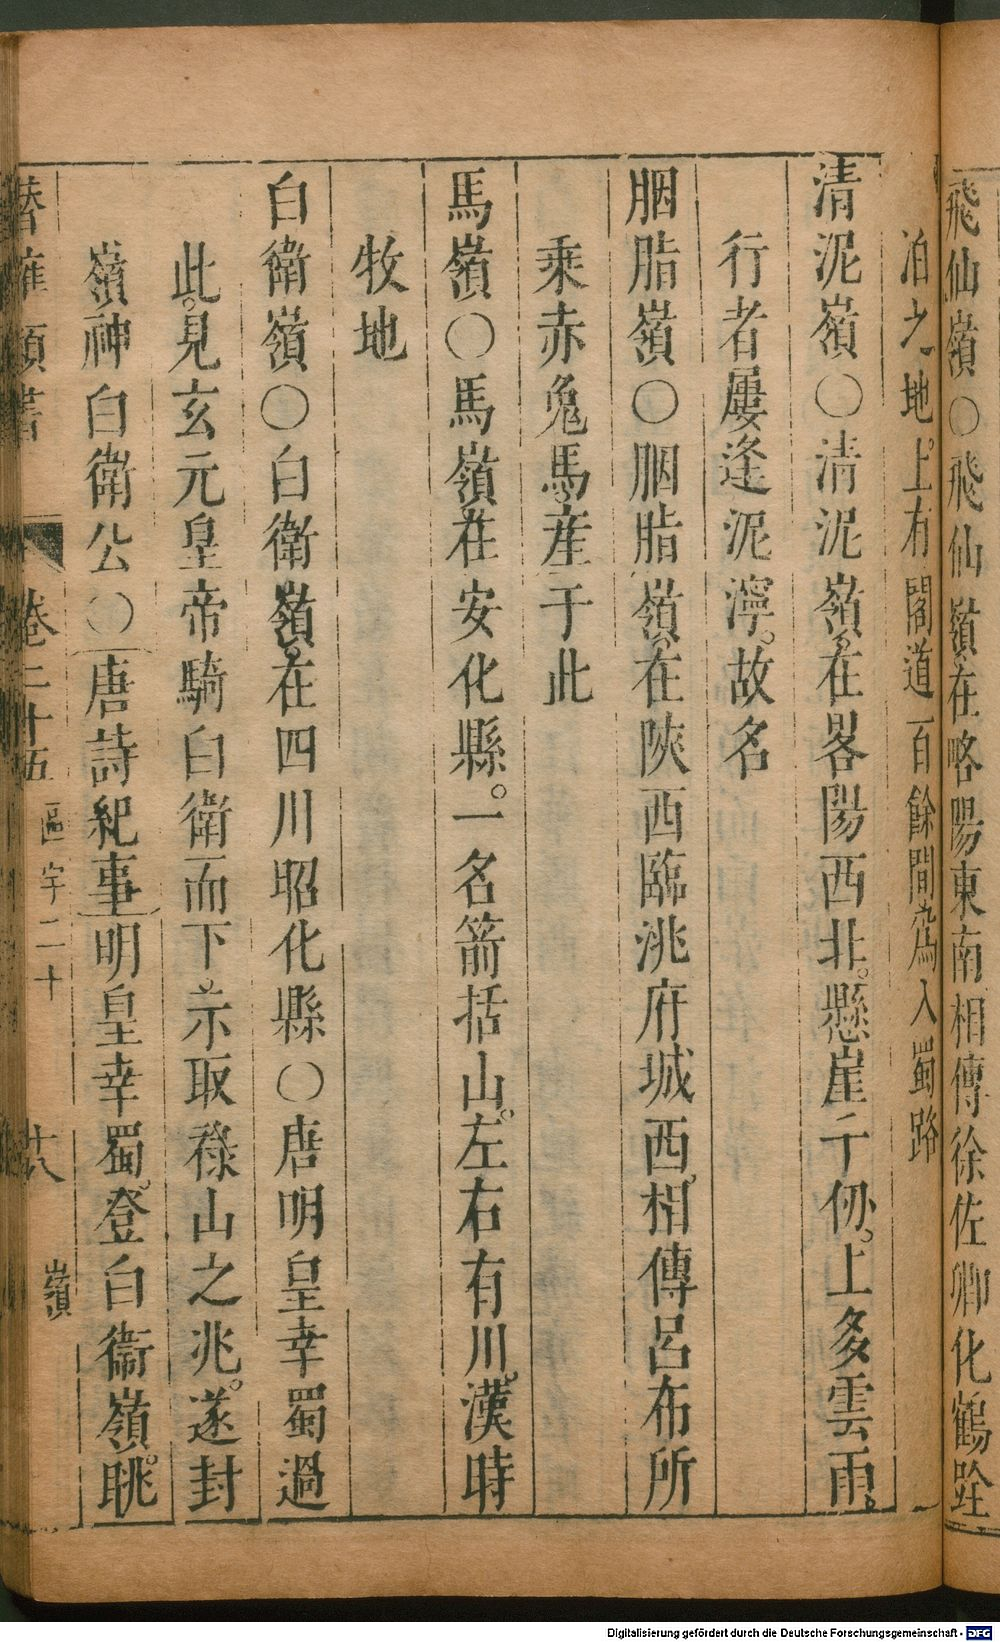 飛仙嶺〇飛仙嶺在略陽東南相傳徐佐卿化鶴跧
泊之地。上有閣道百餘間為入蜀路
清泥嶺〇清泥嶺。在畧陽西北。懸崖千仞。上多雲雨。
行者屢逢泥濘。故名
胭脂嶺〇胭脂嶺。在陝西臨洮府城西。相傳呂布所
乘赤兔馬。產于此
馬嶺〇馬嶺在安化縣。一名箭括山。左右有川。漢時
牧地
白衛嶺〇白衛嶺。在四川昭化縣〇唐明皇幸蜀過
此。見玄元皇帝騎白衛而下。示取祿山之兆。遂封
嶺神白衛公〇唐詩紀事明皇幸蜀。登白衞嶺。眺
卷二十五 區宇二十 十八 嶺
Digitalisierung gefördert durch die Deutsche Forschungsgemeinschaft - DFG